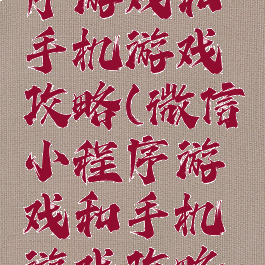 序游戏和
手机游戏
攻略(微信
小程序游
戏和手机
游戏攻略